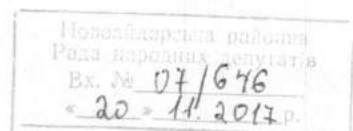 Новоайдарська районна
Рада народних депутатів
Вх. № 07/646
« 20 » 11. 2017 р.